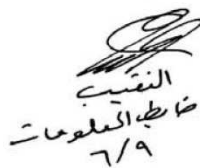 النقيب
ضابط المعلومات
٦/٩